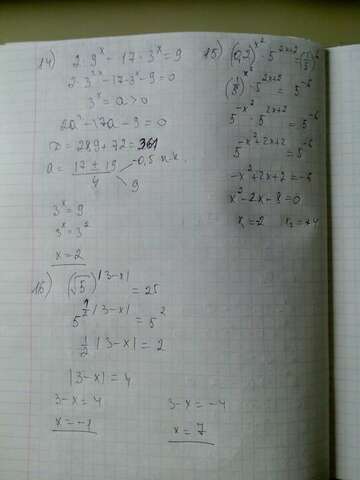 14) 2·9^x - 17·3^x = 9
2·3^2x - 17·3^x - 9 = 0
3^x = a > 0
2a² - 17a - 9 = 0
D = 289 + 72 = 361
a = (17 ± 19)/4
-0,5 п.к.
9
3^x = 9
3^x = 3²
x = 2
15) (0,2)^x² · 5^2x+2 =
· 5^2x+2 = 5^-6
5^-x² · 5^2x+2 = 5^-6
5^-x²+2x+2 = 5^-6
-x² + 2x + 2 = -6
x² - 2x - 8 = 0
x₁ = -2 x₂ = +4
16) (√5)^|3-x| = 25
5^½|3-x| = 5²
½|3-x| = 2
|3-x| = 4
3-x = 4
x = -1
3-x = -4
x = 7